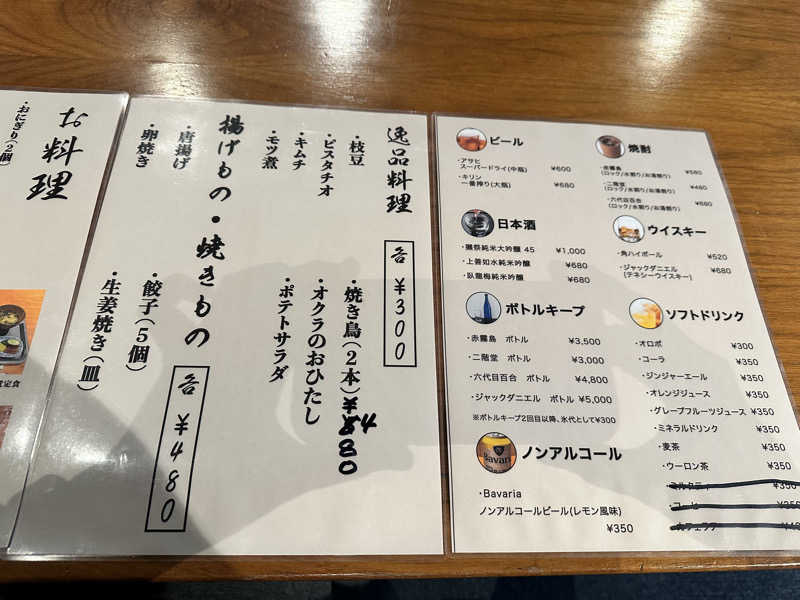 お料理
・おにぎり(2個)
逸品料理
各 ¥300
・枝豆
・ピスタチオ
・キムチ
・モツ煮
・焼き鳥(2本)
・オクラのおひたし
・ポテトサラダ
揚げもの・焼きもの
各 ¥480
・唐揚げ
・卵焼き
・餃子(5個)
・生姜焼き(皿)
定食
ビール
・アサヒ
スーパードライ(中瓶) ¥600
・キリン
一番搾り(大瓶) ¥680
日本酒
・獺祭純米大吟醸 45 ¥1,000
・上善如水純米吟醸 ¥680
・臥龍梅純米吟醸 ¥680
ボトルキープ
・赤霧島 ボトル ¥3,500
・二階堂 ボトル ¥3,000
・六代目百合 ボトル ¥4,800
・ジャックダニエル ボトル ¥5,000
※ボトルキープ2回目以降、氷代として¥300
ノンアルコール
・Bavaria
ノンアルコールビール(レモン風味)
¥350
焼酎
・赤霧島 ¥580
(ロック/水割り/お湯割り)
・二階堂 ¥480
(ロック/水割り/お湯割り)
・六代目百合 ¥680
(ロック/水割り/お湯割り)
ウイスキー
・角ハイボール ¥520
・ジャックダニエル ¥680
(テネシーウイスキー)
ソフトドリンク
・オロポ ¥300
・コーラ ¥350
・ジンジャーエール ¥350
・オレンジジュース ¥350
・グレープフルーツジュース ¥350
・ミネラルドリンク ¥350
・麦茶 ¥350
・ウーロン茶 ¥350
・ミルクティ ¥350
・コーヒー ¥350
・カフェラテ